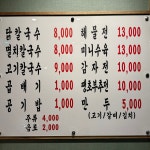 닭칼국수 8,000
멸치칼국수 8,000
고기칼국수 9,000
곱빼기 1,000
공기밥 1,000
주류 4,000
음료 2,000
해물전 13,000
미니수육 13,000
감자전 10,000
10,000
만두 5,000
(고기/갈비/김치)